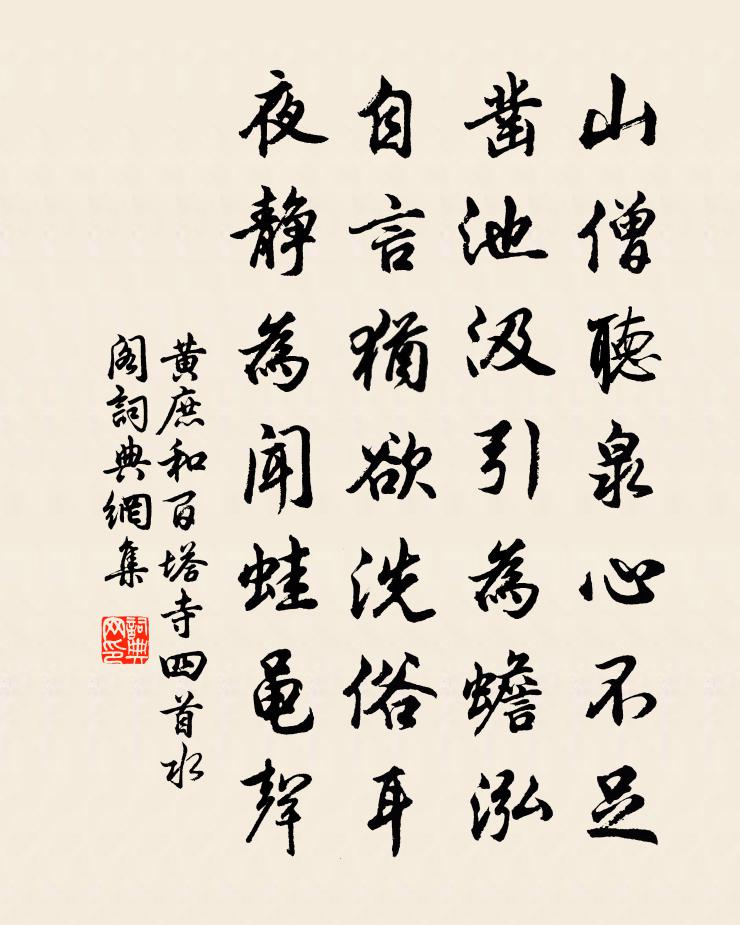 山僧聽泉心不足
鑿池汲引為蟾泓
自言猶欲洗俗耳
夜靜為聞蛙黽聲
黃庶和百塔寺四首水
閣詞典網集
詞典
网印